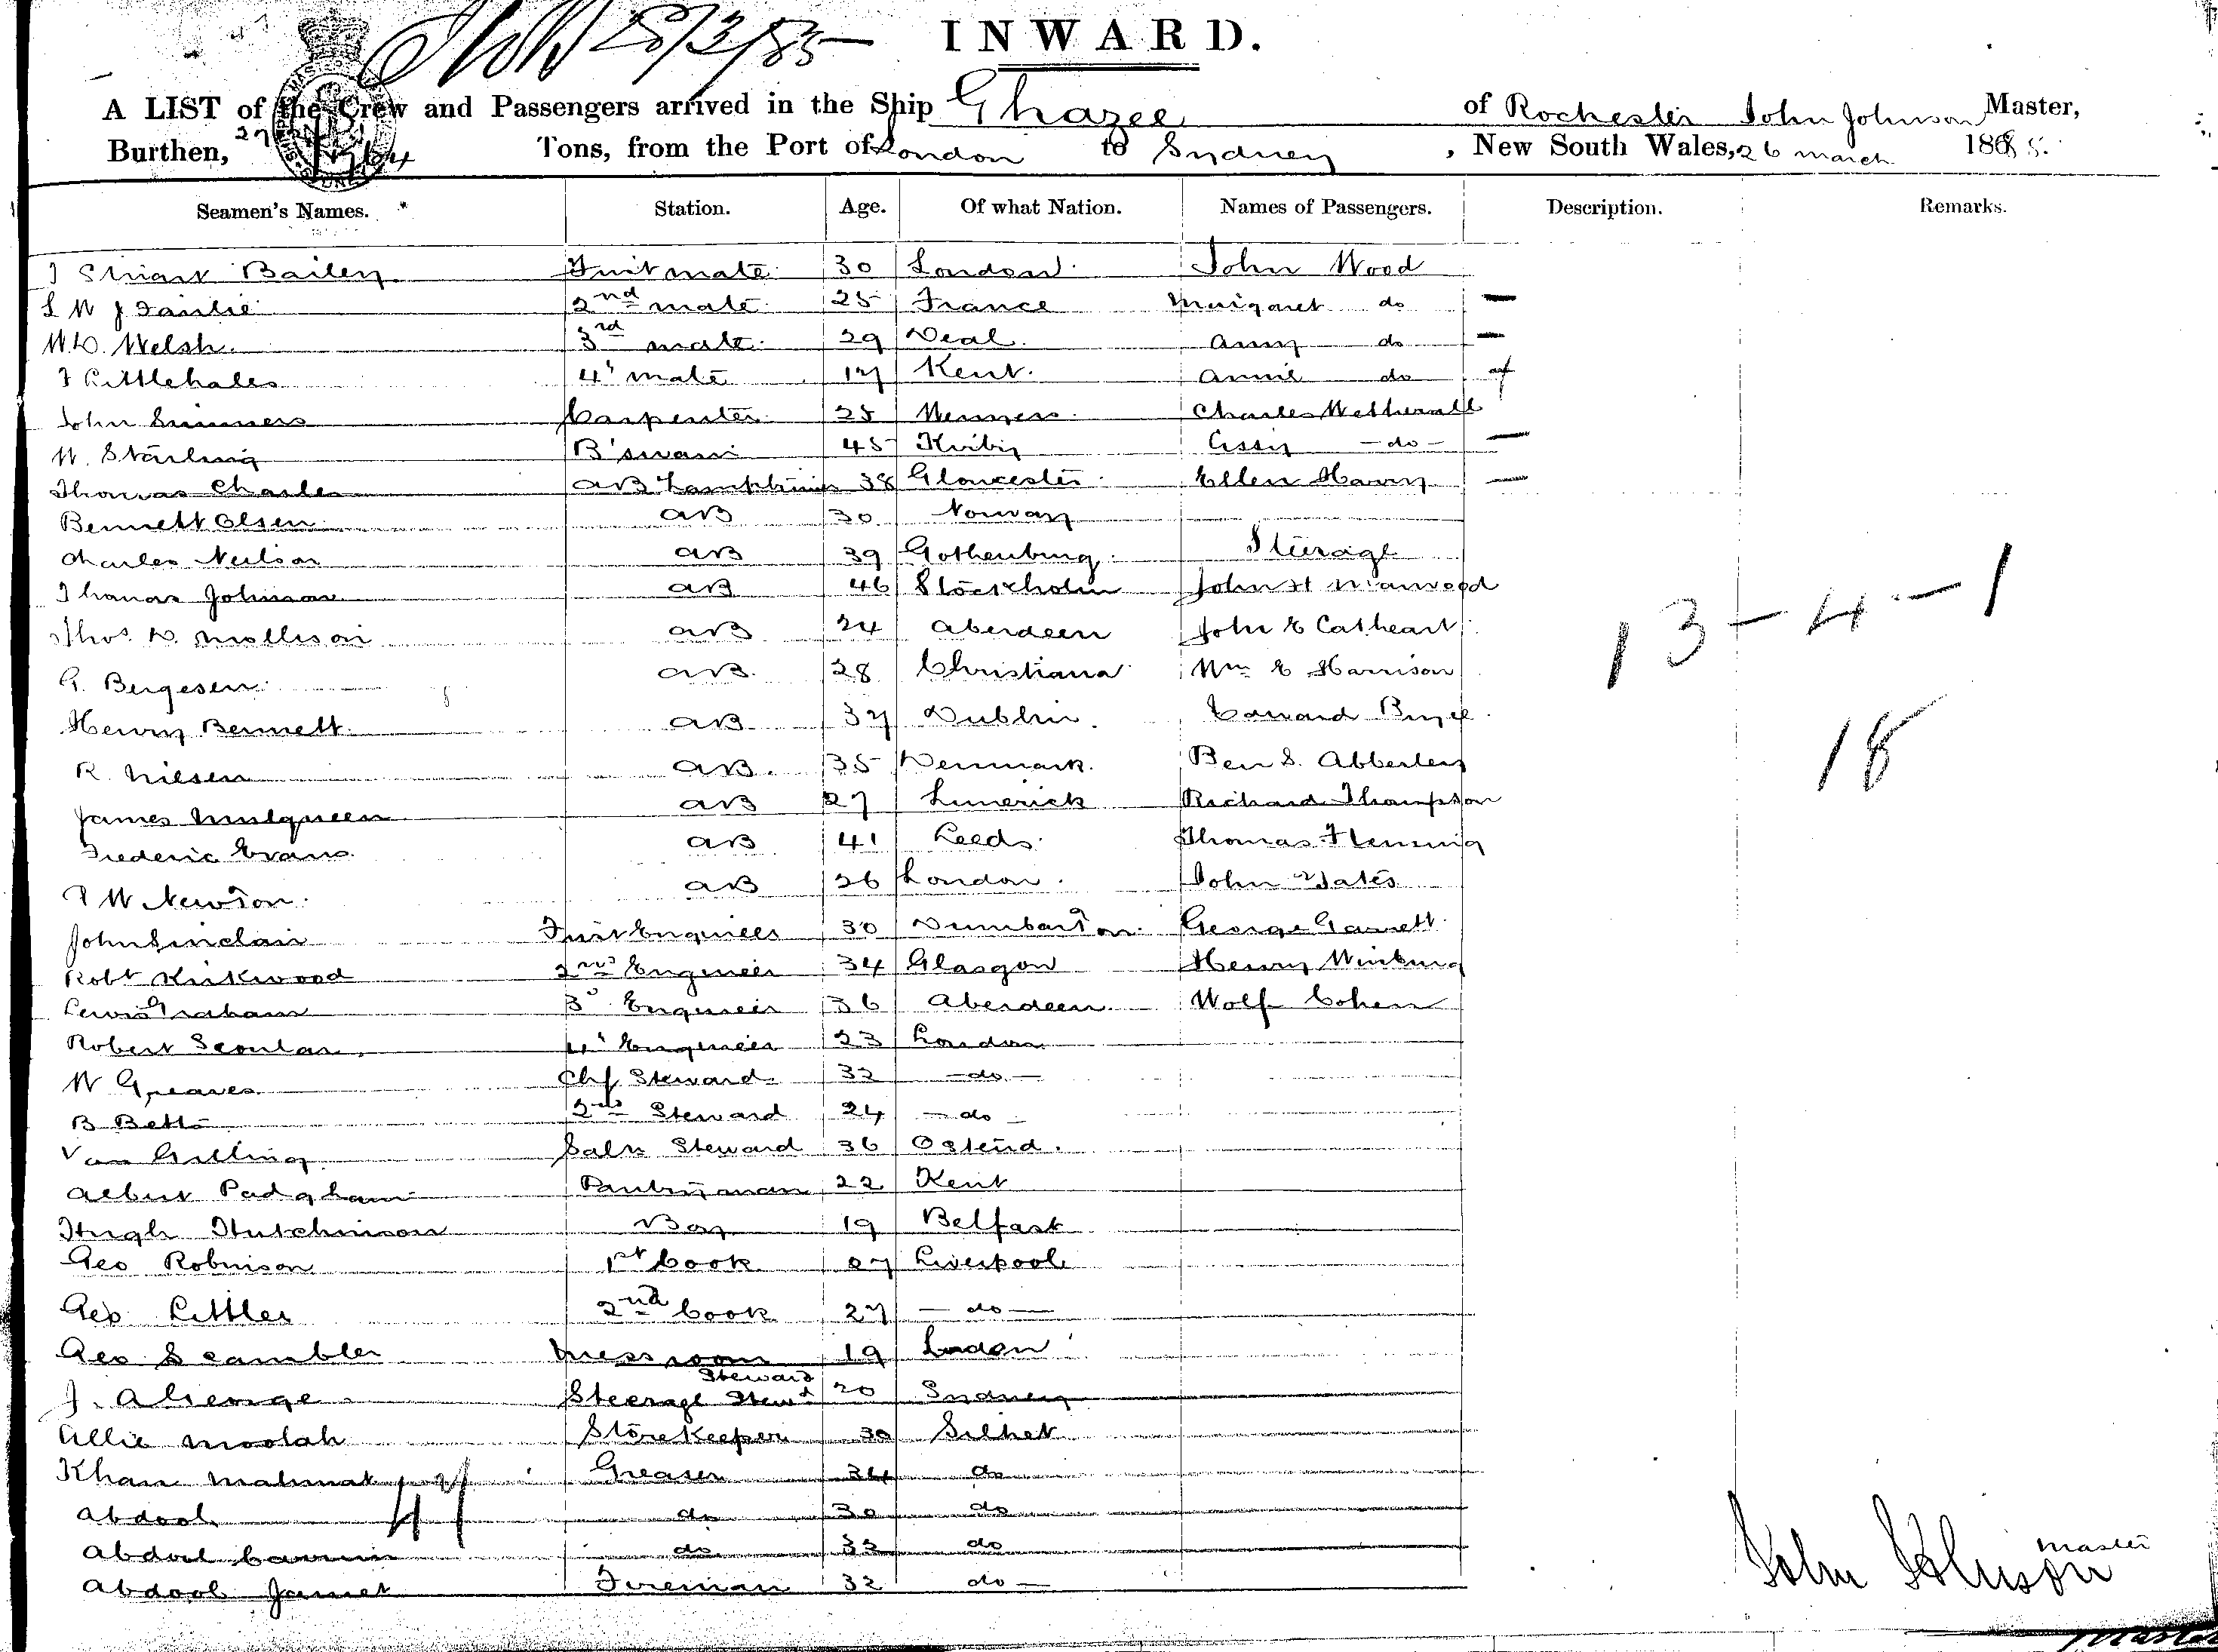 INWARD.
A LIST of the Crew and Passengers arrived in the Ship Ghazee of Rochester John Johnson Master,
Burthen, Tons, from the Port of London to Sydney, New South Wales, 26 march 1885.
Seamen's Names. Station. Age. Of what Nation. Names of Passengers. Description. Remarks.
Bailey First mate 30 London John Wood
2nd mate 25 France Margaret do —
W.D. Welsh. 3rd mate 29 Deal. Amy do —
Littlehales 4' mate 17 Kent. Annie do
John Summers Carpenter 25 Charles Wetherall
W. Starling B'swain 45 Cissy - do - —
Thomas Charles AB Lamptrimr 38 Gloucester Ellen Harry —
Bennett Olsen AB 30 Norway
Charles Neilson AB 39 Gothenburg. Steerage
Thomas Johnson AB 46 Stockholm John H
Thos. D. Mollison AB 24 Aberdeen John E Cathcart
G. Bergesen AB 28 Christiana Wm E Harrison
Henry Bennett AB 37 Dublin. Edward
R. Nilsen AB. 35 Denmark. Ben S. Abberley
James Mulqueen AB 27 Limerick Richard Thompson
Frederic Evans AB 41 Leeds. Thomas Fleming
W Newton. AB 26 London. John Yates
John Sinclair First Engineer 30 Dumbarton. George Garnett
Robt Kirkwood 2nd Engineer 34 Glasgow Henry
Lewis Graham 3d Engineer 36 Aberdeen Wolf Cohen
Robert Scoular 4' Engineer 23 London
W Greaves Chf Steward 32 - do -
B Betts 2nd Steward 24 - do -
Van Gilling Saln Steward 36 Ostend.
Albert Padgham Pantryman 22 Kent
Hugh Hutchinson Boy 19 Belfast
Geo Robinson 1st Cook 27 Liverpool
Geo Littler 2nd Cook 27 - do -
Geo Scambler Messroom Steward 19 London
J. Steerage Stewd 20 Sydney
Allie Moolah Storekeeper 30 Silhet
Khan Mahmat Greaser 34 do
Abdool do 30 do
Abdool do 32 do
Abdool Jamet Fireman 32 do -
13 - 4 - 1
18
John Johnson master